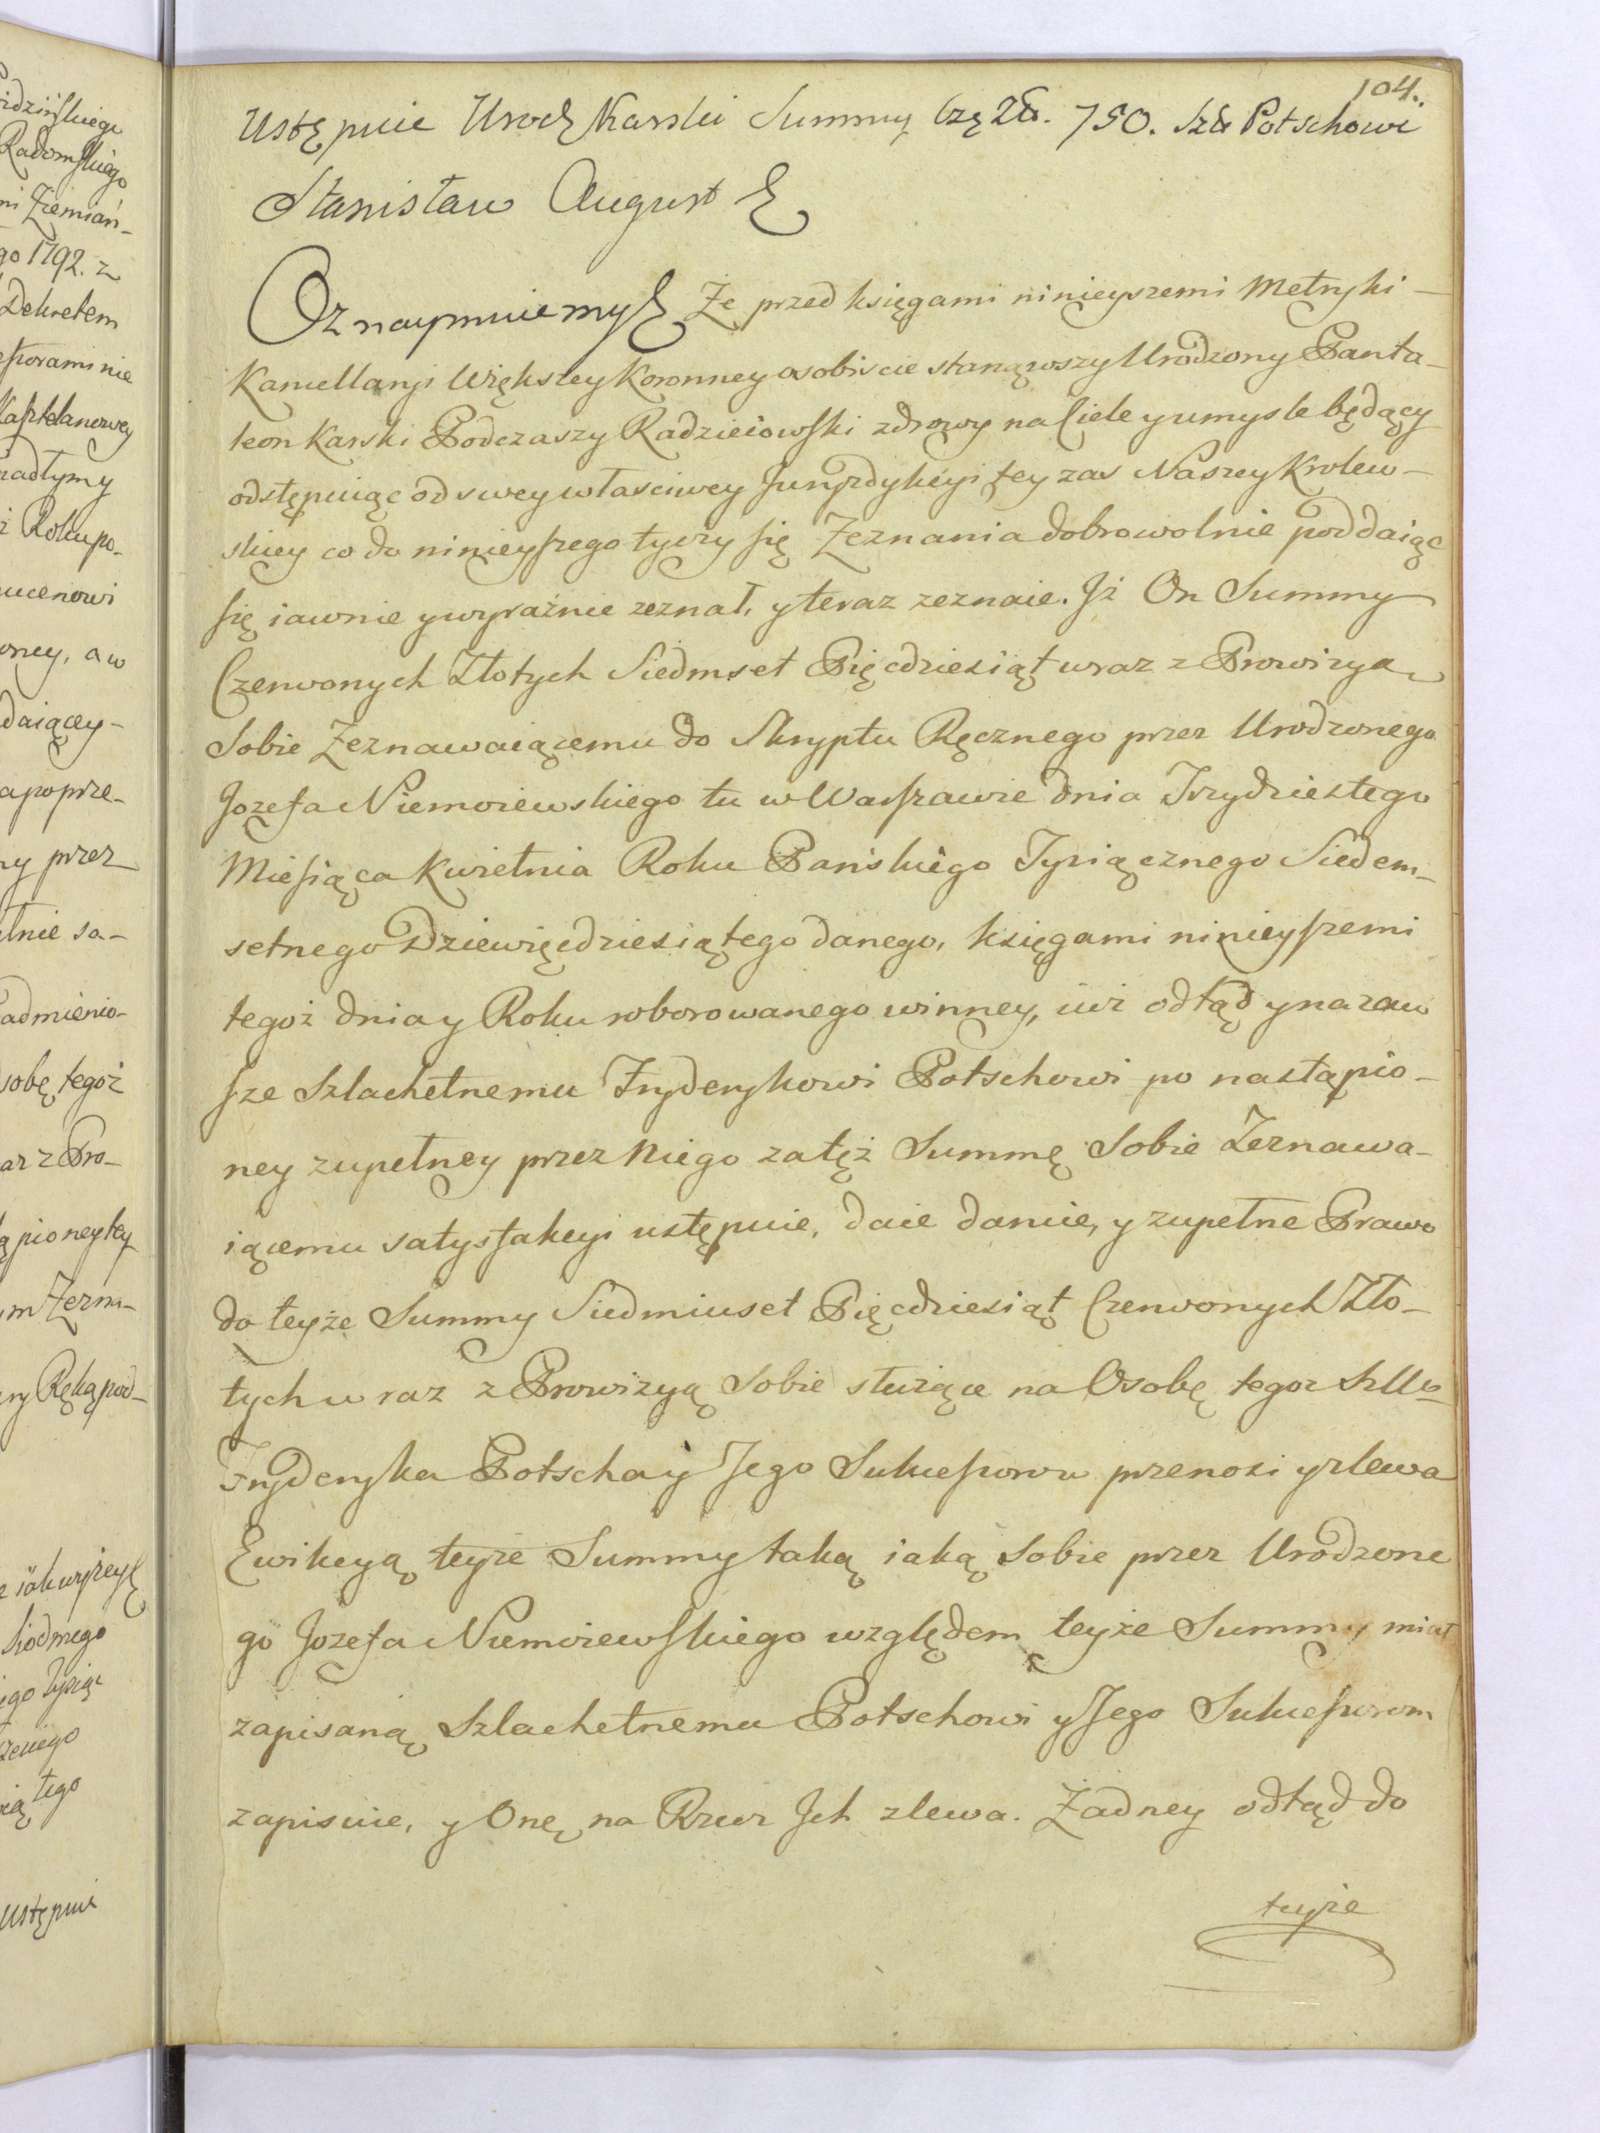 104.
Ustępuie Urodz Karski Summy Czę Zł. 750. Szl: Potschowi
Stanisław August &
Oznaymuiemy & Że przed księgami ninieyszemi Metryki
Kancellaryi Większey Koronney osobiscie stanąwszy Urodzony Panta-
leon Karski Podczaszy Radzieiowski zdrowy na Ciele y umysle będący
odstępuiąc od swey własciwey Juryzdykcyi tey zas Naszey Krolew-
skiey co do ninieyszego tyczy się Zeznania dobrowolnie poddaiąc
się iawnie y wyraźnie zeznał, y teraz zeznaie. Jż On Summy
Czerwonych Złotych Siedmset Pięcdziesiąt wraz z Prowizyą
Sobie Zeznawaiącemu do Skryptu Ręcznego przez Urodzonego
Jozefa Niemoiewskiego tu w Warszawie dnia Trzydziestego
Miesiąca Kwietnia Roku Pańskiego Tysiącznego Siedem-
setnego Dziewięcdziesiątego danego, księgami ninieyszemi
tegoż dnia y Roku roborowanego winney, iuż odtąd y na zaw
sze Szlachetnemu Fryderykowi Potschowi po nastąpio-
ney zupełney przez Niego zatęż Summę Sobie Zeznawa-
iącemu satysfakcyi ustępuie, daie daruie, y zupełne Prawo
do teyże Summy Siedmiuset Pięcdziesiąt Czerwonych Zło-
tych w raz z Prowizyą Sobie służące na Osobę tegoż Szll
Fryderyka Potscha y Jego Sukcessorow przenosi y zlewa
Ewikcyą teyże Summy taką iaką Sobie przez Urodzone
go Jozefa Niemoiewskiego względem teyże Summy miał
zapisaną Szlachetnemu Potschowi y Jego Sukcessorom
zapisuie, y Onę na Rzecz Jch zlewa. Żadney odtąd do
teyże